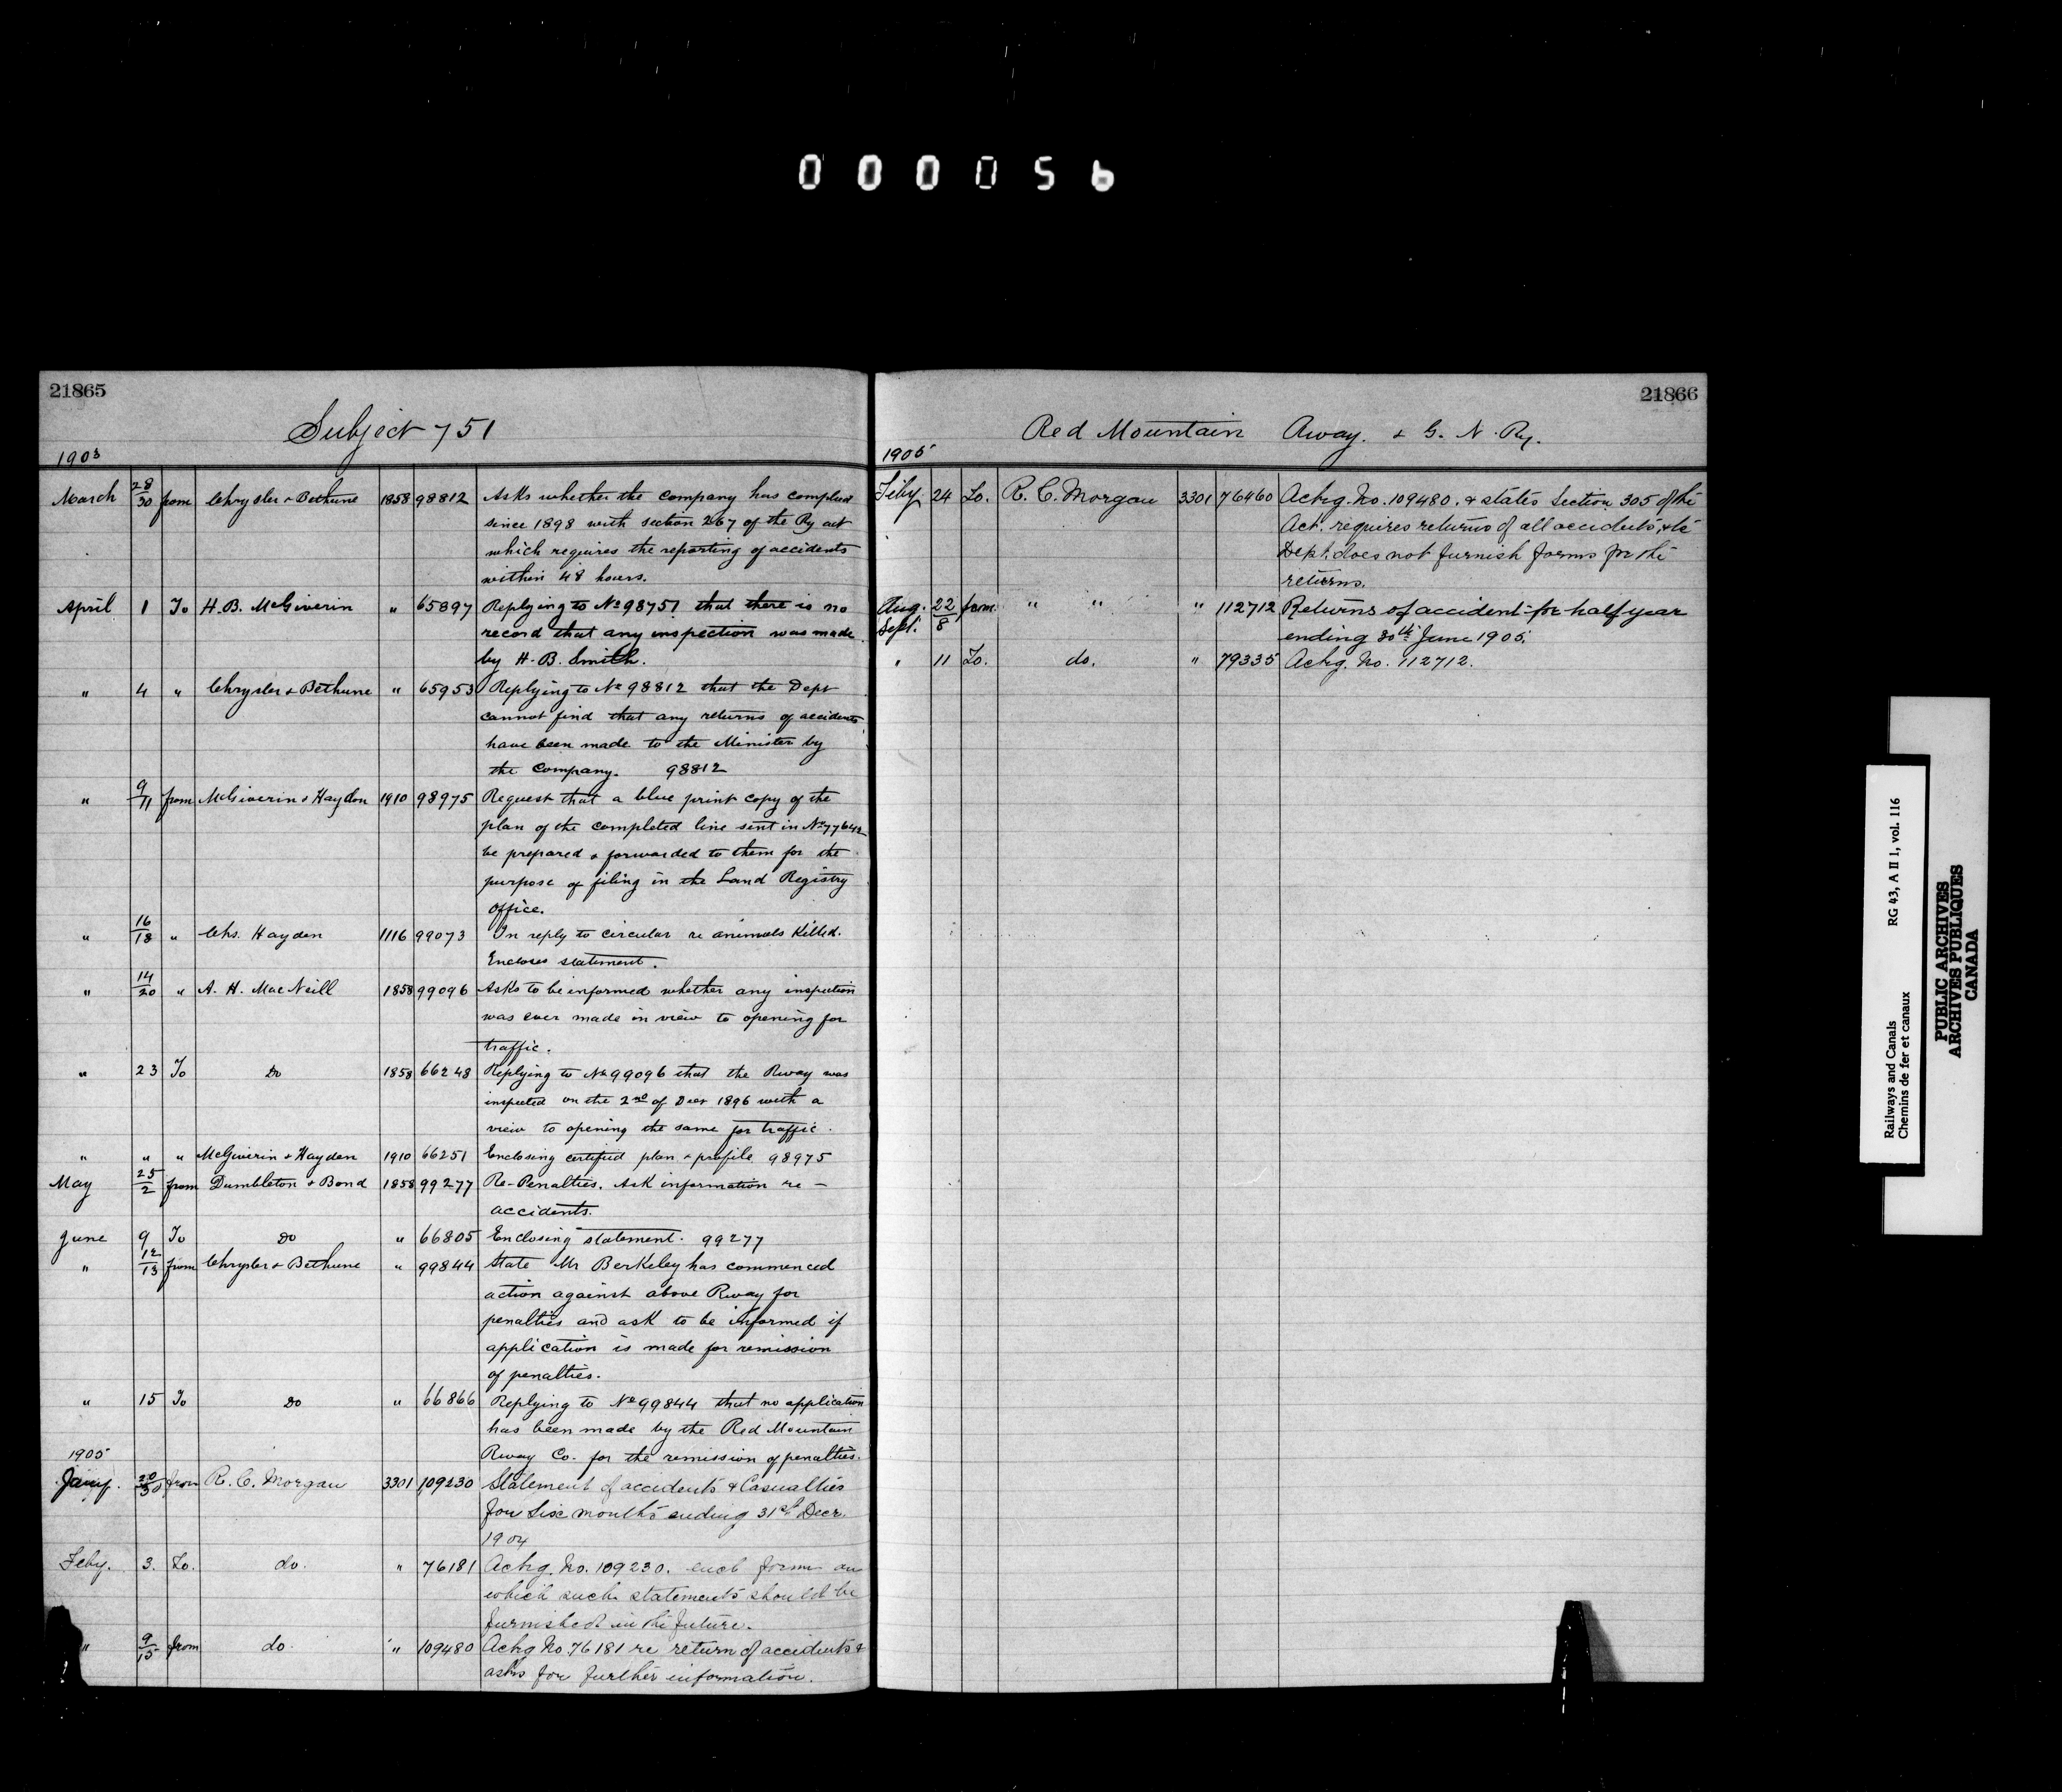 000056
21865
Subject 751
1903
March 28/30 from Chrysler & Bethune 1858 98812 Asks whether the company has complied
since 1898 with section 267 of the Ry act
which requires the reporting of accidents
within 48 hours.
April 1 To H. B. McGiverin " 65897 Replying to No 98751 that there is no
record that any inspection was made
by H. B. Smith.
" 4 " Chrysler & Bethune " 65953 Replying to No 98812 that the Dept
cannot find that any returns of accidents
have been made to the Minister by
the Company. 98812
" 9/11 from McGiverin & Haydon 1910 98975 Request that a blue print copy of the
plan of the completed line sent in No 77642
be prepared & forwarded to them for the
purpose of filing in the Land Registry
Office.
" 16/18 " Chs. Hayden 1116 99073 In reply to circular re animals killed.
Encloses statement.
" 14/20 " A. H. MacNeill 1858 99096 Asks to be informed whether any inspection
was ever made in view to opening for
traffic.
" 23 To Do 1858 66248 Replying to No 99096 that the Rway was
inspected on the 2nd of Decr 1896 with a
view to opening the same for traffic.
" " " McGiverin & Hayden 1910 66251 Enclosing certified plan & profile 98975
May 25/2 from Dumbleton & Bond 1858 99277 Re-Penalties. Ask information re -
accidents.
June 9 To Do " 66805 Enclosing statement. 99277
" 12/13 from Chrysler & Bethune " 99844 State Mr Berkeley has commenced
action against above Rway for
penalties and ask to be informed if
application is made for remission
of penalties.
" 15 To Do " 66866 Replying to No 99844 that no application
has been made by the Red Mountain
Rway Co. for the remission of penalties.
1905
Jany. 20/30 from R. C. Morgan 3301 109230 Statement of accidents & Casualties
for six months ending 31st Decr.
1904
Feby. 3. To. do. " 76181 Ackg. No. 109230. encl forms on
which such statements should be
furnished in the future.
" 9/15 from do. " 109480 Ackg No 76181 re return of accidents &
asks for further information.
21866
Red Mountain Rway. & G. N. Ry.
1905
Feby. 24 To. R. C. Morgan 3301 76460 Ackg. No. 109480. & states Section 305 of the
Act. requires returns of all accidents, & the
Dept. does not furnish forms for the
returns.
Aug. 22 from " " " 112712 Returns of accident for half year
Sept. 8 ending 30th June 1905.
" 11 To. do. " 79335 Ackg. No. 112712.
Railways and Canals RG 43, A II 1, vol. 116
Chemins de fer et canaux
PUBLIC ARCHIVES
ARCHIVES PUBLIQUES
CANADA